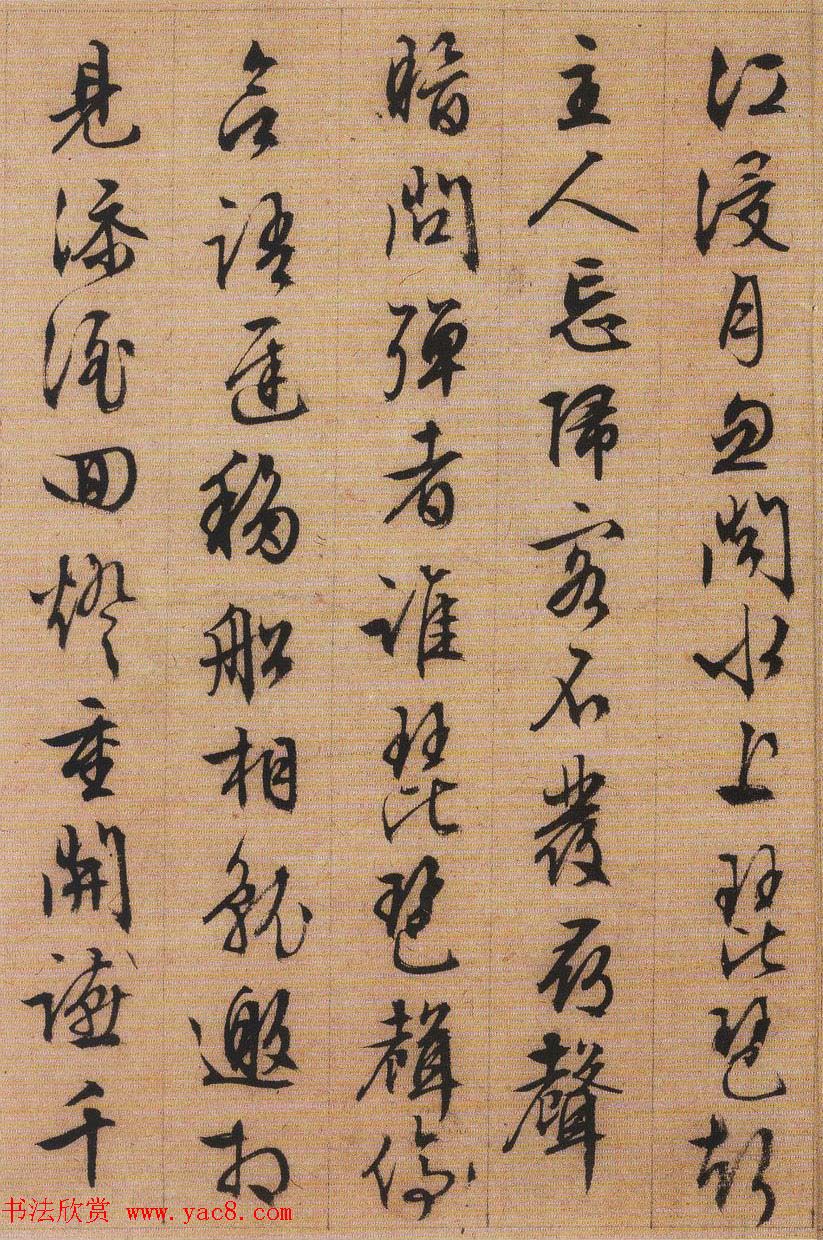 江浸月忽聞水上琵琶聲
主人忘歸客不發尋聲
暗問彈者誰琵琶聲停
語遲移船相就邀相
見添酒回燈重開讌千
书法欣赏 www.yac8.com